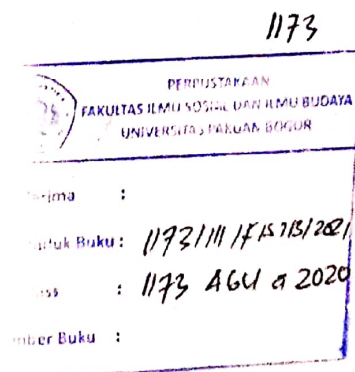 1173
PERPUSTAKAAN
FAKULTAS ILMU SOSIAL DAN ILMU BUDAYA
UNIVERSITAS PAKUAN BOGOR
rima :
duk Buku : 1173/III/
ss : 1173 AGU a 2020
mber Buku :